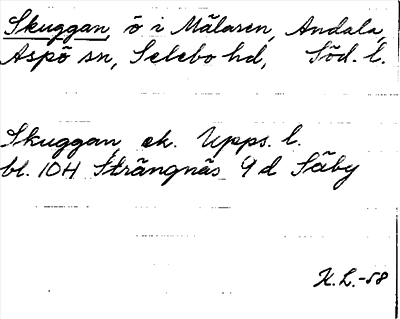 Skuggan, ö i Mälaren, Andala,
Aspö sn, Selebo hd, Söd. l.
Skuggan, ek. Upps. l.
bl. 10H Strängnäs 9d Säby
K.L.-58